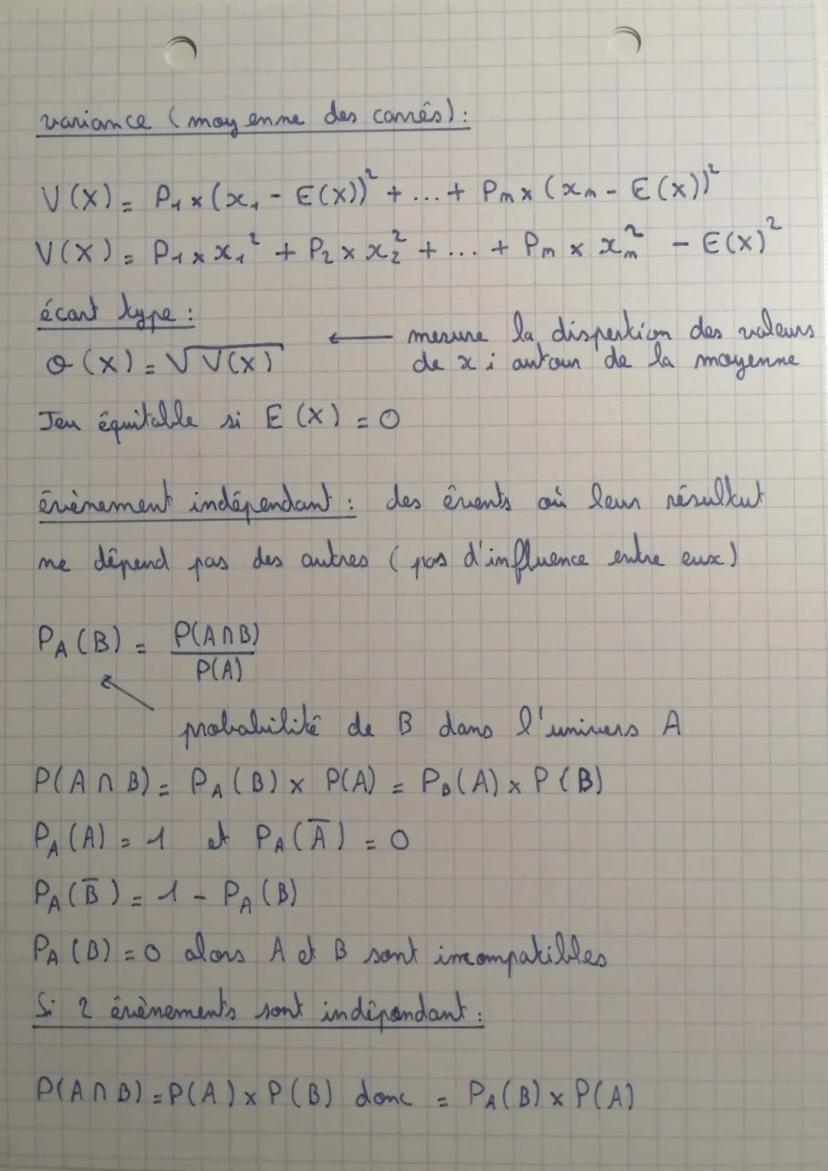 variance (moyenne des carrés) :
V(X) = P₁ × (x₁ - E(X))² + ... + Pn × (xn - E(X))²
V(X) = P₁ × x₁² + P₂ × x₂² + ... + Pn × xn² - E(X)²
écart type :
σ(X) = √V(X) ← mesure la dispertion des valeurs
de xi autour de la moyenne
Jeu équitable si E(X) = 0
évènement indépendant : des évents où leur résultat
ne dépend pas des autres (pas d'influence entre eux)
PA(B) = P(A∩B)
P(A)
probabilité de B dans l'univers A
P(A∩B) = PA(B) × P(A) = PB(A) × P(B)
PA(A) = 1 et PA(A̅) = 0
PA(B̅) = 1 - PA(B)
PA(B) = 0 alors A et B sont incompatibles
Si 2 évènements sont indépendant :
P(A∩B) = P(A) × P(B) donc = PA(B) × P(A)